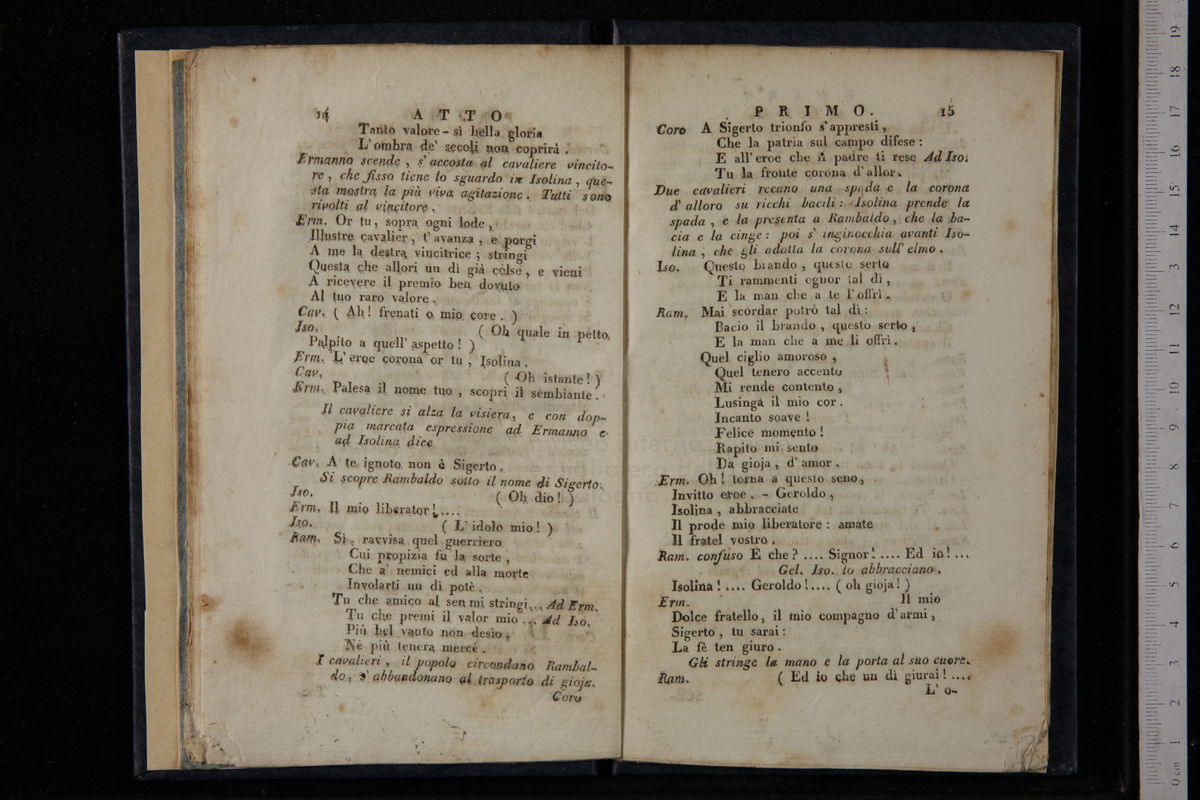 14
ATTO
Tanto valore - sì bella gloria
L'ombra de' secoli non coprirà.
Ermanno scende, s'accosta al cavaliere vincito-
re, che fisso tiene lo sguardo in Isolina, que-
sta mostra la più viva agitazione. Tutti sono
rivolti al vincitore.
Erm. Or tu, sopra ogni lode,
Illustre cavalier, t'avanza, e porgi
A me la destra vincitrice; stringi
Questa che allori un dì già colse, e vieni
A ricevere il premio ben dovuto
Al tuo raro valore.
Cav. ( Ah! frenati o mio core. )
Iso. ( Oh quale in petto,
Palpito a quell' aspetto! )
Erm. L'eroe corona or tu, Isolina.
Cav. ( Oh istante! )
Erm. Palesa il nome tuo, scopri il sembiante.
Il cavaliere si alza la visiera, e con dop-
pia marcata espressione ad Ermanno e
ad Isolina dice
Cav. A te ignoto non è Sigerto.
Si scopre Rambaldo sotto il nome di Sigerto.
Iso. ( Oh dio! )
Erm. Il mio liberator!....
Iso. ( L'idolo mio! )
Ram. Sì, ravvisa quel guerriero
Cui propizia fu la sorte,
Che a' nemici ed alla morte
Involarti un dì potè.
Tu che amico al sen mi stringi... Ad Erm.
Tu che premi il valor mio... Ad Iso.
Più bel vanto non desìo,
Nè più tenera mercè.
I cavalieri, il popolo circondano Rambal-
do, s'abbandonano al trasporto di gioja.
Coro
PRIMO.
15
Coro A Sigerto trionfo s'appresti,
Che la patria sul campo difese:
E all'eroe che il padre ti rese Ad Iso.
Tu la fronte corona d'allor.
Due cavalieri recano una spada e la corona
d'alloro su ricchi bacili: Isolina prende la
spada, e la presenta a Rambaldo, che la ba-
cia e la cinge: poi s'inginocchia avanti Iso-
lina, che gli adatta la corona sull'elmo.
Iso. Questo brando, questo serto
Ti rammenti ognor tal dì,
E la man che a te l'offrì.
Ram. Mai scordar potrò tal dì:
Bacio il brando, questo serto,
E la man che a me li offrì.
Quel ciglio amoroso,
Quel tenero accento
Mi rende contento,
Lusinga il mio cor.
Incanto soave!
Felice momento!
Rapito mi sento
Da gioja, d'amor.
Erm. Oh! torna a questo seno,
Invitto eroe. - Geroldo,
Isolina, abbracciate
Il prode mio liberatore: amate
Il fratel vostro.
Ram. confuso E che?.... Signor!.... Ed io!...
Gel. Iso. lo abbracciano.
Isolina!.... Geroldo!.... ( oh gioja! )
Erm. Il mio
Dolce fratello, il mio compagno d'armi,
Sigerto, tu sarai:
La fè ten giuro.
Gli stringe la mano e la porta al suo cuore.
Ram. ( Ed io che un dì giurai!....
L' o-
19
18
17
16
15
14
13
12
11
10
9
8
7
6
5
4
3
2
1
0 cm